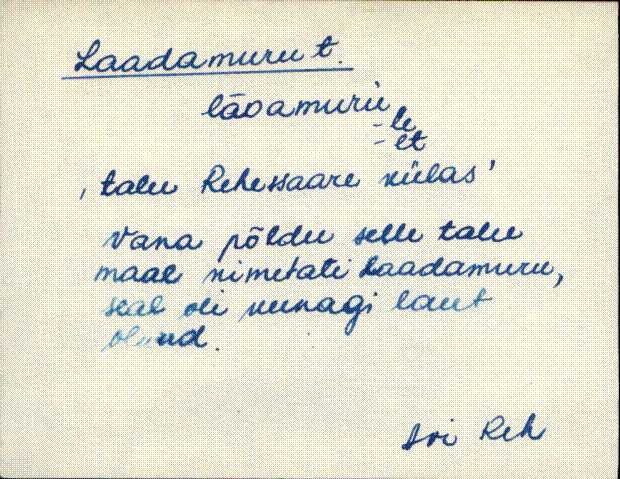 Laadamuru t.
lādamuru
-le
-et
'talu Rehessaare külas'
Vana põldu selle talu
maal nimetati Laadamuru,
seal oli kunagi laut
olnud.
Reh